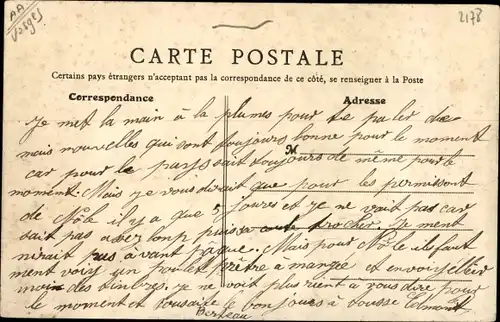 AA
Vosges
2178
CARTE POSTALE
Certains pays étrangers n'acceptant pas la correspondance de ce côté, se renseigner à la Poste
Correspondance
Adresse
M
Je met la main à la plumes pour te paler de
mais nouvelles qui sont toujours bonne pour le moment
car pour le pays sait toujours de même pour le
moment. Mais je vous dirait que pour les permissont
de Nöle il y a que 5 joures et je ne vait pas car
sait pas assez lonp puis
nirait pas avant pâque. Mais pour Nöle il faut
ment voiy un poulet prètre à mangée et envoiy
moin des timbres. je ne voit plus rient a vous dire pour
le moment et vousaite le bonjoures à tousse Edmont
Berteau